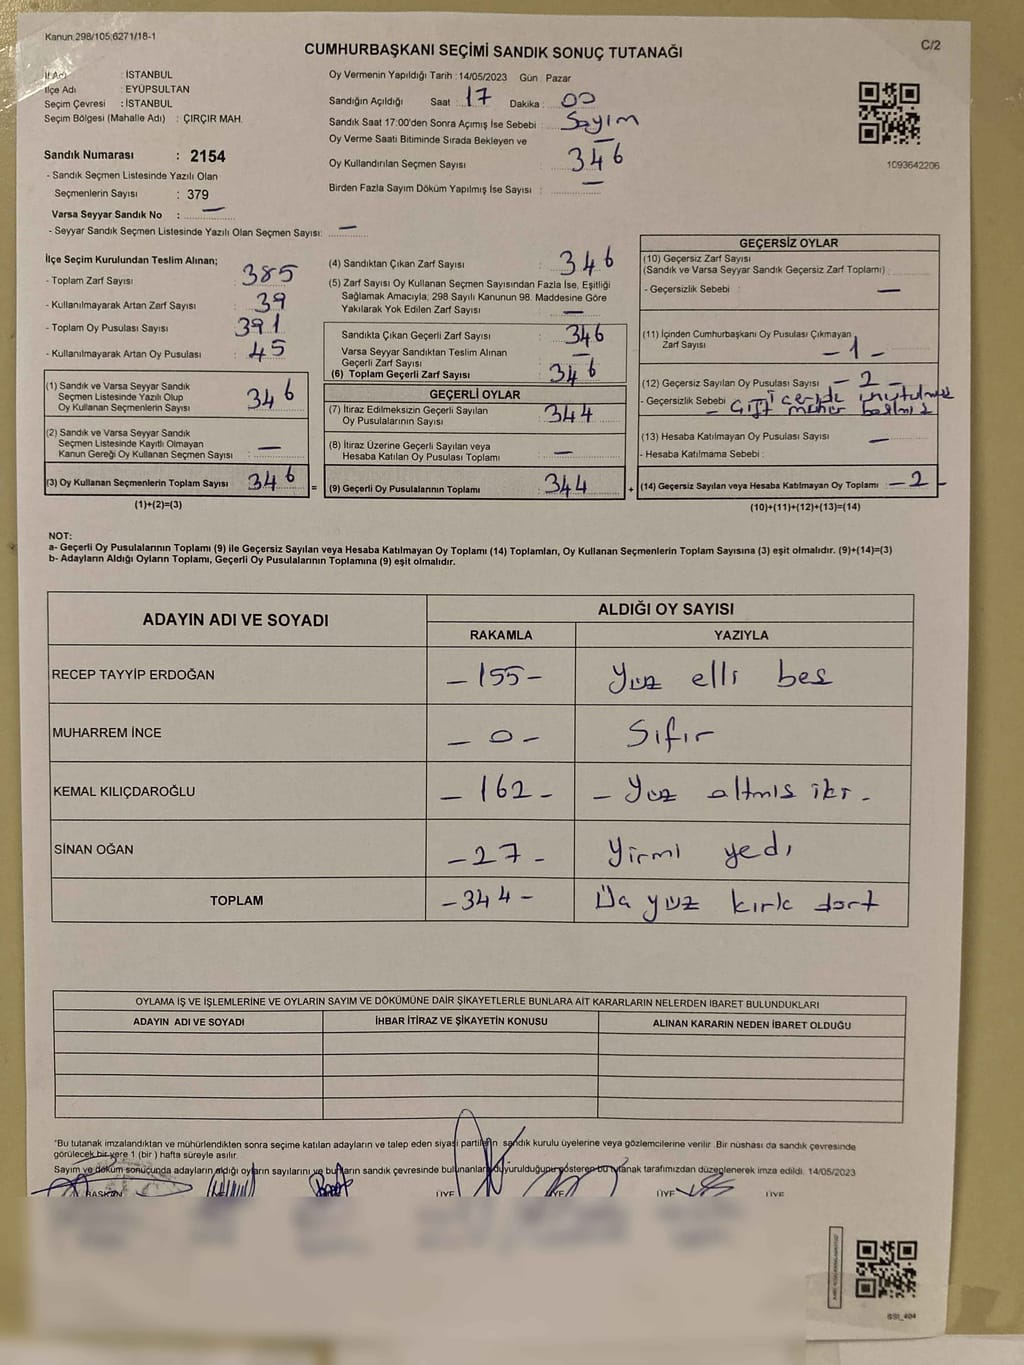 Kanun 298/105,6271/18-1
CUMHURBAŞKANI SEÇİMİ SANDIK SONUÇ TUTANAĞI
C/2
İl Adı : İSTANBUL
İlçe Adı : EYÜPSULTAN
Seçim Çevresi : İSTANBUL
Seçim Bölgesi (Mahalle Adı) : ÇIRÇIR MAH.
Sandık Numarası : 2154
- Sandık Seçmen Listesinde Yazılı Olan
Seçmenlerin Sayısı : 379
Varsa Seyyar Sandık No : —
- Seyyar Sandık Seçmen Listesinde Yazılı Olan Seçmen Sayısı: —
Oy Vermenin Yapıldığı Tarih : 14/05/2023 Gün : Pazar
Sandığın Açıldığı Saat : 17 Dakika : 00
Sandık Saat 17:00'den Sonra Açımış İse Sebebi : Sayım
Oy Verme Saati Bitiminde Sırada Bekleyen ve
Oy Kullandırılan Seçmen Sayısı : 346
Birden Fazla Sayım Döküm Yapılmış İse Sayısı : —
1093642206
İlçe Seçim Kurulundan Teslim Alınan;
- Toplam Zarf Sayısı : 385
- Kullanılmayarak Artan Zarf Sayısı : 39
- Toplam Oy Pusulası Sayısı : 391
- Kullanılmayarak Artan Oy Pusulası : 45
(1) Sandık ve Varsa Seyyar Sandık
Seçmen Listesinde Yazılı Olup
Oy Kullanan Seçmenlerin Sayısı : 346
(2) Sandık ve Varsa Seyyar Sandık
Seçmen Listesinde Kayıtlı Olmayan
Kanun Gereği Oy Kullanan Seçmen Sayısı : —
(3) Oy Kullanan Seçmenlerin Toplam Sayısı : 346
(1)+(2)=(3)
(4) Sandıktan Çıkan Zarf Sayısı : 346
(5) Zarf Sayısı Oy Kullanan Seçmen Sayısından Fazla İse, Eşitliği
Sağlamak Amacıyla; 298 Sayılı Kanunun 98. Maddesine Göre
Yakılarak Yok Edilen Zarf Sayısı : —
Sandıkta Çıkan Geçerli Zarf Sayısı : 346
Varsa Seyyar Sandıktan Teslim Alınan
Geçerli Zarf Sayısı : —
(6) Toplam Geçerli Zarf Sayısı : 346
GEÇERLİ OYLAR
(7) İtiraz Edilmeksizin Geçerli Sayılan
Oy Pusulalarının Sayısı : 344
(8) İtiraz Üzerine Geçerli Sayılan veya
Hesaba Katılan Oy Pusulası Toplamı : —
= (9) Geçerli Oy Pusulalarının Toplamı : 344 +
GEÇERSİZ OYLAR
(10) Geçersiz Zarf Sayısı
(Sandık ve Varsa Seyyar Sandık Geçersiz Zarf Toplamı) :
- Geçersizlik Sebebi : —
(11) İçinden Cumhurbaşkanı Oy Pusulası Çıkmayan
Zarf Sayısı : - 1 -
(12) Geçersiz Sayılan Oy Pusulası Sayısı : - 2 -
- Geçersizlik Sebebi : içeride unutulmuş
- çift mühür basılmış
(13) Hesaba Katılmayan Oy Pusulası Sayısı : —
- Hesaba Katılmama Sebebi :
(14) Geçersiz Sayılan veya Hesaba Katılmayan Oy Toplamı : - 2 -
(10)+(11)+(12)+(13)=(14)
NOT:
a- Geçerli Oy Pusulalarının Toplamı (9) ile Geçersiz Sayılan veya Hesaba Katılmayan Oy Toplamı (14) Toplamları, Oy Kullanan Seçmenlerin Toplam Sayısına (3) eşit olmalıdır. (9)+(14)=(3)
b- Adayların Aldığı Oyların Toplamı, Geçerli Oy Pusulalarının Toplamına (9) eşit olmalıdır.
ADAYIN ADI VE SOYADI ALDIĞI OY SAYISI
RAKAMLA YAZIYLA
RECEP TAYYİP ERDOĞAN - 155 - Yüz elli beş
MUHARREM İNCE - 0 - Sıfır
KEMAL KILIÇDAROĞLU - 162 - - Yüz altmış iki -
SİNAN OĞAN - 27 - Yirmi yedi
TOPLAM - 344 - Üç yüz kırk dört
OYLAMA İŞ VE İŞLEMLERİNE VE OYLARIN SAYIM VE DÖKÜMÜNE DAİR ŞİKAYETLERLE BUNLARA AİT KARARLARIN NELERDEN İBARET BULUNDUKLARI
ADAYIN ADI VE SOYADI İHBAR İTİRAZ VE ŞİKAYETİN KONUSU ALINAN KARARIN NEDEN İBARET OLDUĞU
*Bu tutanak imzalandıktan ve mühürlendikten sonra seçime katılan adayların ve talep eden siyasi partilerin sandık kurulu üyelerine veya gözlemcilerine verilir. Bir nüshası da sandık çevresinde
görülecek bir yere 1 (bir) hafta süreyle asılır.
Sayım ve döküm sonucunda adayların aldığı oyların sayılarını ve bunların sandık çevresinde bulunanlara duyurulduğunu gösteren bu tutanak tarafımızdan düzenlenerek imza edildi. 14/05/2023
BAŞKAN ÜYE ÜYE ÜYE ÜYE